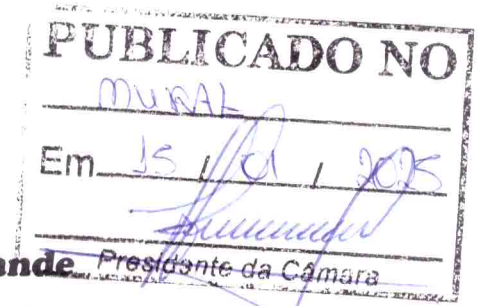 PUBLICADO NO
MURAL
Em 15 / 01 / 2025
ande Presidente da Câmara